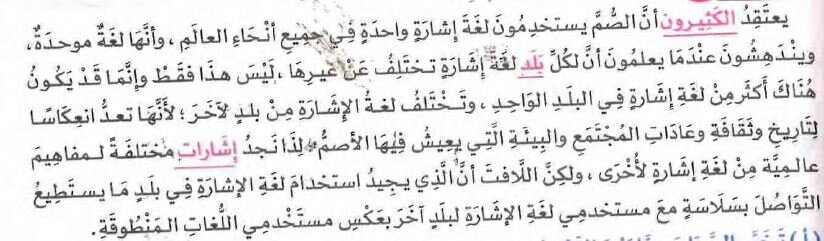 يعتَقِدُ الكَثِيرون أنَّ الصُّمَّ يستخدِمُونَ لغَةَ إشارَةٍ واحدَةٍ فِي جميعِ أنْحَاءِ العالَمِ ، وأنَّهَا لغَةٌ موحدَةٌ،
ويندَهِشُونَ عنْدَمَا يعلمُونَ أنَّ لكُلِّ بلَدٍ لغَةَ إشارَةٍ تختَلِفُ عَنْ غيرِهَا ، لَيْسَ هذَا فقَطْ وإنَّمَا قَدْ يَكُونُ
هُنَاكَ أكثَر مِنْ لغَةِ إشارَةٍ فِي البلَدِ الوَاحِدِ ، وتَخْتَلفُ لغَةُ الإشارَةِ مِنْ بلدٍ لآخَرَ ؛ لأنَّهَا تعدُّ انعِكَاسًا
لِتَارِيخِ وثَقَافَةِ وعَادَاتِ المُجْتَمَعِ والبِيئَةِ الَّتِي يعِيشُ فِيْهَا الأصمُّ ، لذَا نَجدُ إشَارات مختَلفَةً لـمفاهِيمَ
عالـمِيَّة مِنْ لغَةِ إشارَةٍ لأُخْرَى ، ولكِنَّ اللَّافتَ أنَّ الَّذِي يجِيدُ استخدَامَ لغَةِ الإشارَةِ فِي بلَدٍ مَا يستَطِيعُ
التَّوَاصُلَ بسَلَاسَةٍ معَ مستخدمِي لغَةِ الإشارَةِ لبلَدٍ آخَرَ بعَكْسِ مستَخْدمِي اللُّغَاتِ الـمَنْطُوقَةِ.